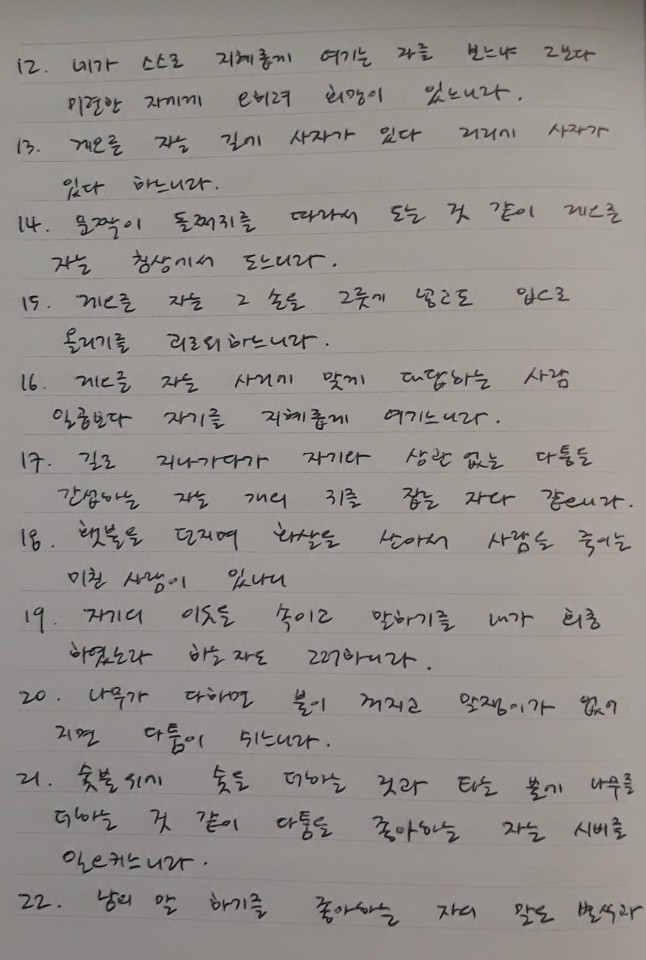 12. 네가 스스로 지혜롭게 여기는 자를 보느냐 그보다
미련한 자에게 오히려 희망이 있느니라.
13. 게으른 자는 길에 사자가 있다 거리에 사자가
있다 하느니라.
14. 문짝이 돌쩌귀를 따라서 도는 것 같이 게으른
자는 침상에서 도느니라.
15. 게으른 자는 그 손을 그릇에 넣고도 입으로
올리기를 괴로워하느니라.
16. 게으른 자는 사리에 맞게 대답하는 사람
일곱보다 자기를 지혜롭게 여기느니라.
17. 길로 지나가다가 자기와 상관 없는 다툼을
간섭하는 자는 개의 귀를 잡는 자와 같으니라.
18. 횃불을 던지며 화살을 쏘아서 사람을 죽이는
미친 사람이 있나니
19. 자기의 이웃을 속이고 말하기를 내가 희롱
하였노라 하는 자도 그러하니라.
20. 나무가 다하면 불이 꺼지고 말쟁이가 없어
지면 다툼이 쉬느니라.
21. 숯불 위에 숯을 더하는 것과 타는 불에 나무를
더하는 것 같이 다툼을 좋아하는 자는 시비를
일으키느니라.
22. 남의 말 하기를 좋아하는 자의 말은 별식과